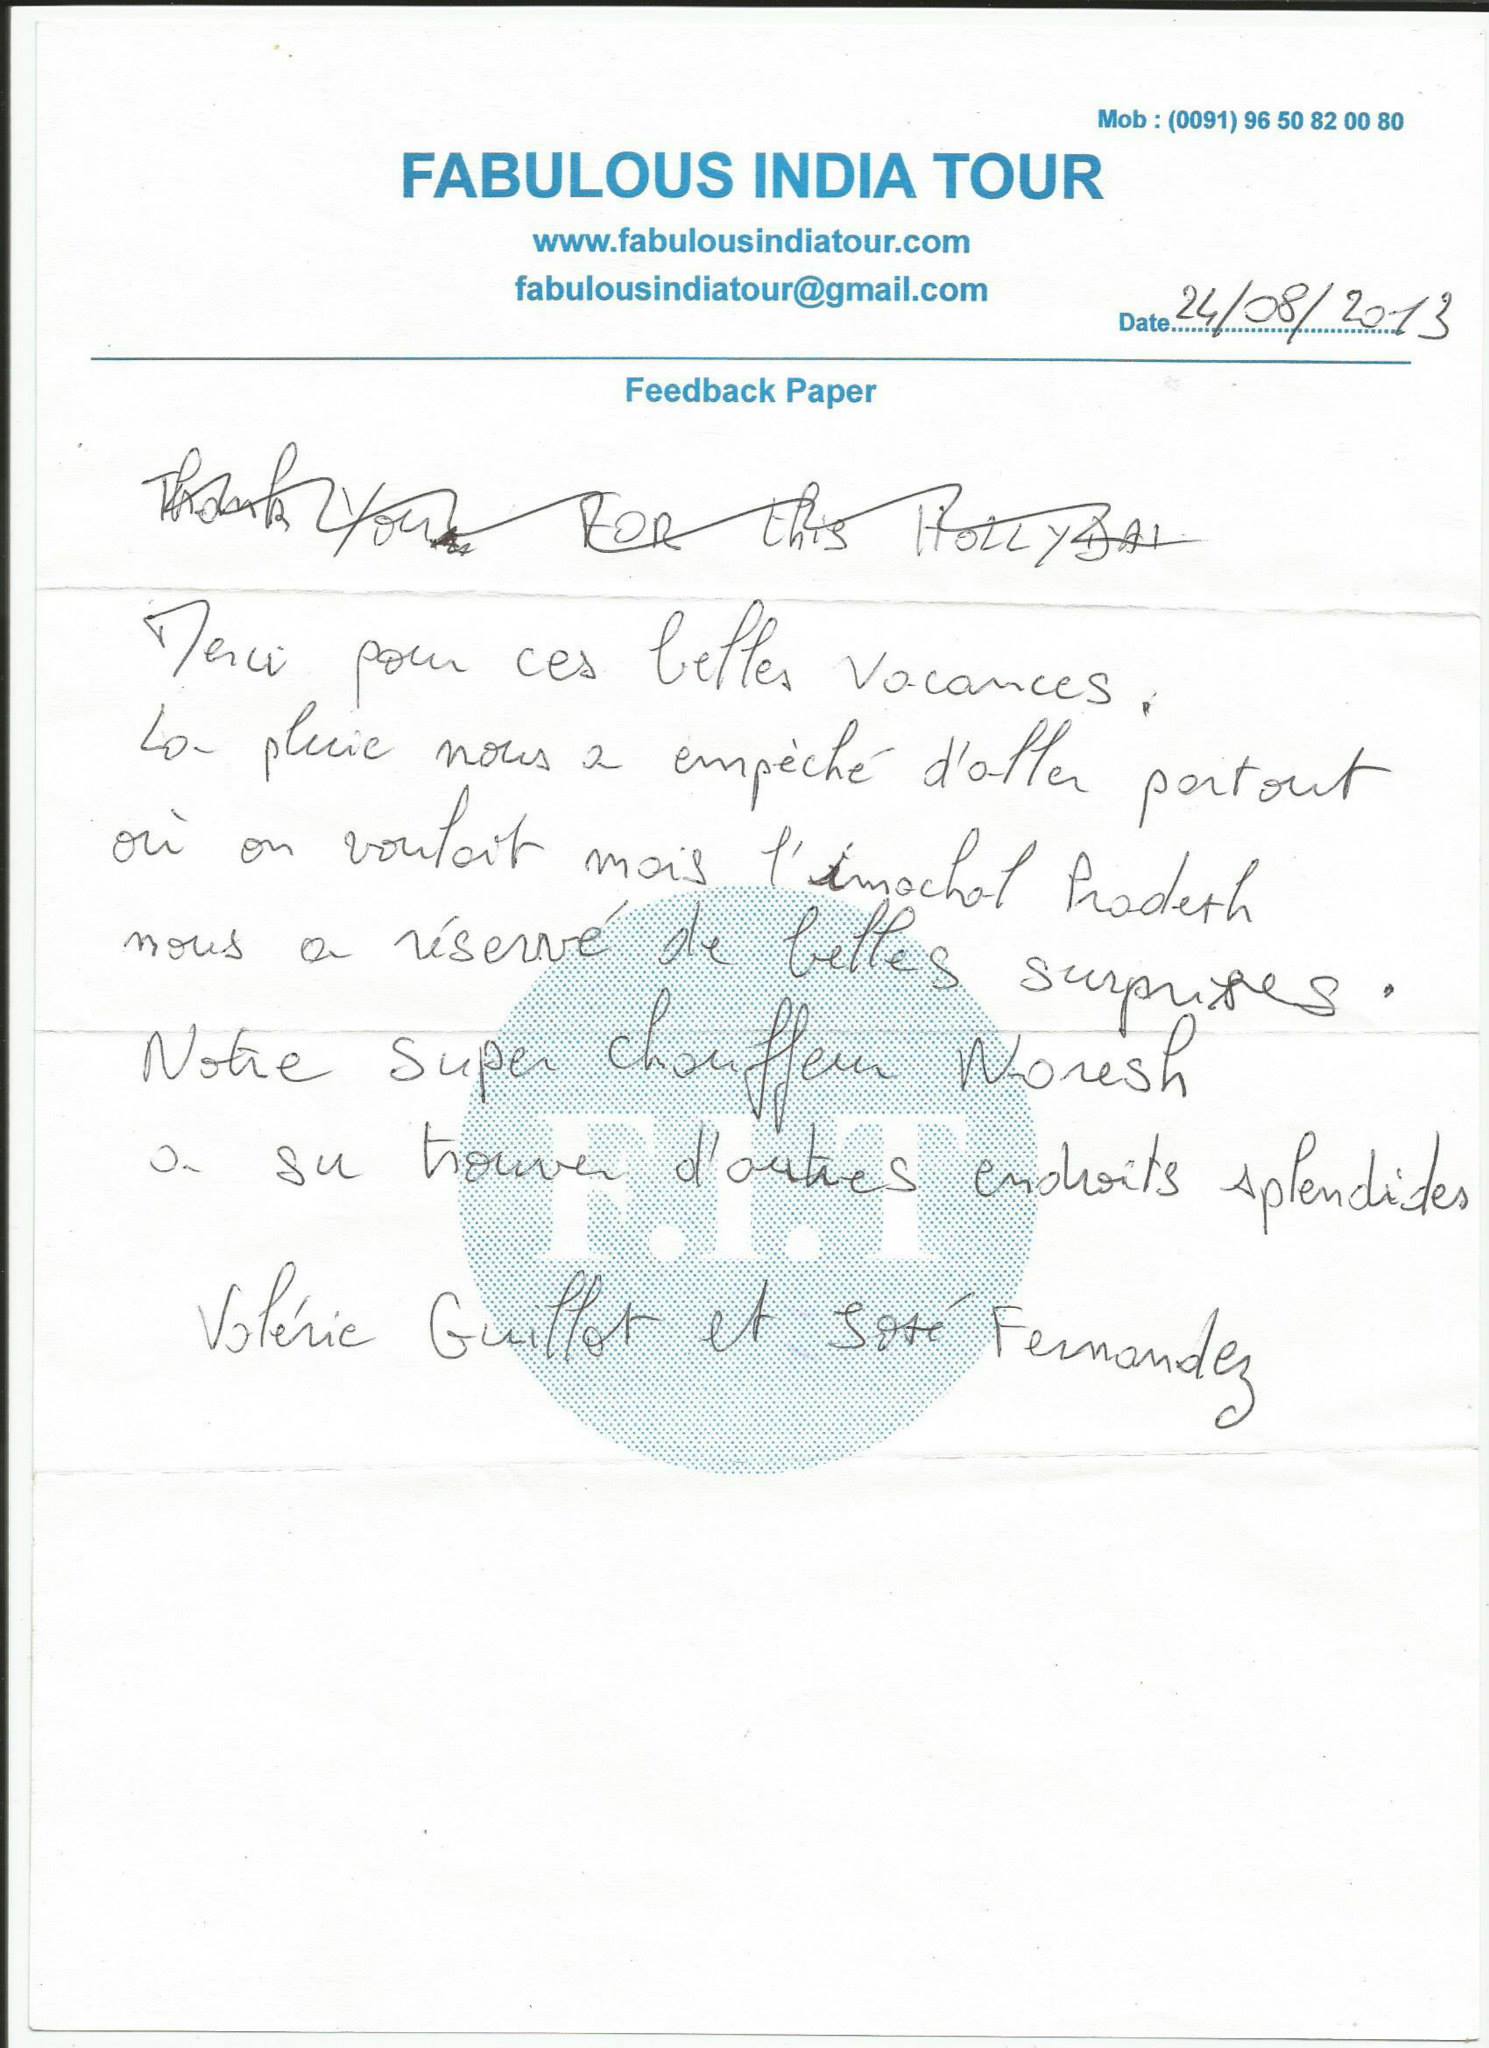 Mob : (0091) 96 50 82 00 80
FABULOUS INDIA TOUR
www.fabulousindiatour.com
fabulousindiatour@gmail.com
Date 24/08/2013
Feedback Paper
Thank You FOR this HOLLYDAI
Merci pour ces belles vacances.
La pluie nous a empèché d'aller partout
où on voulait mais l'imachal Pradesh
nous a réservé de belles surprises.
Notre super chauffeur Naresh
a su trouver d'autres endroits splendides
F.I.T
Valérie Guillot et José Fernandez